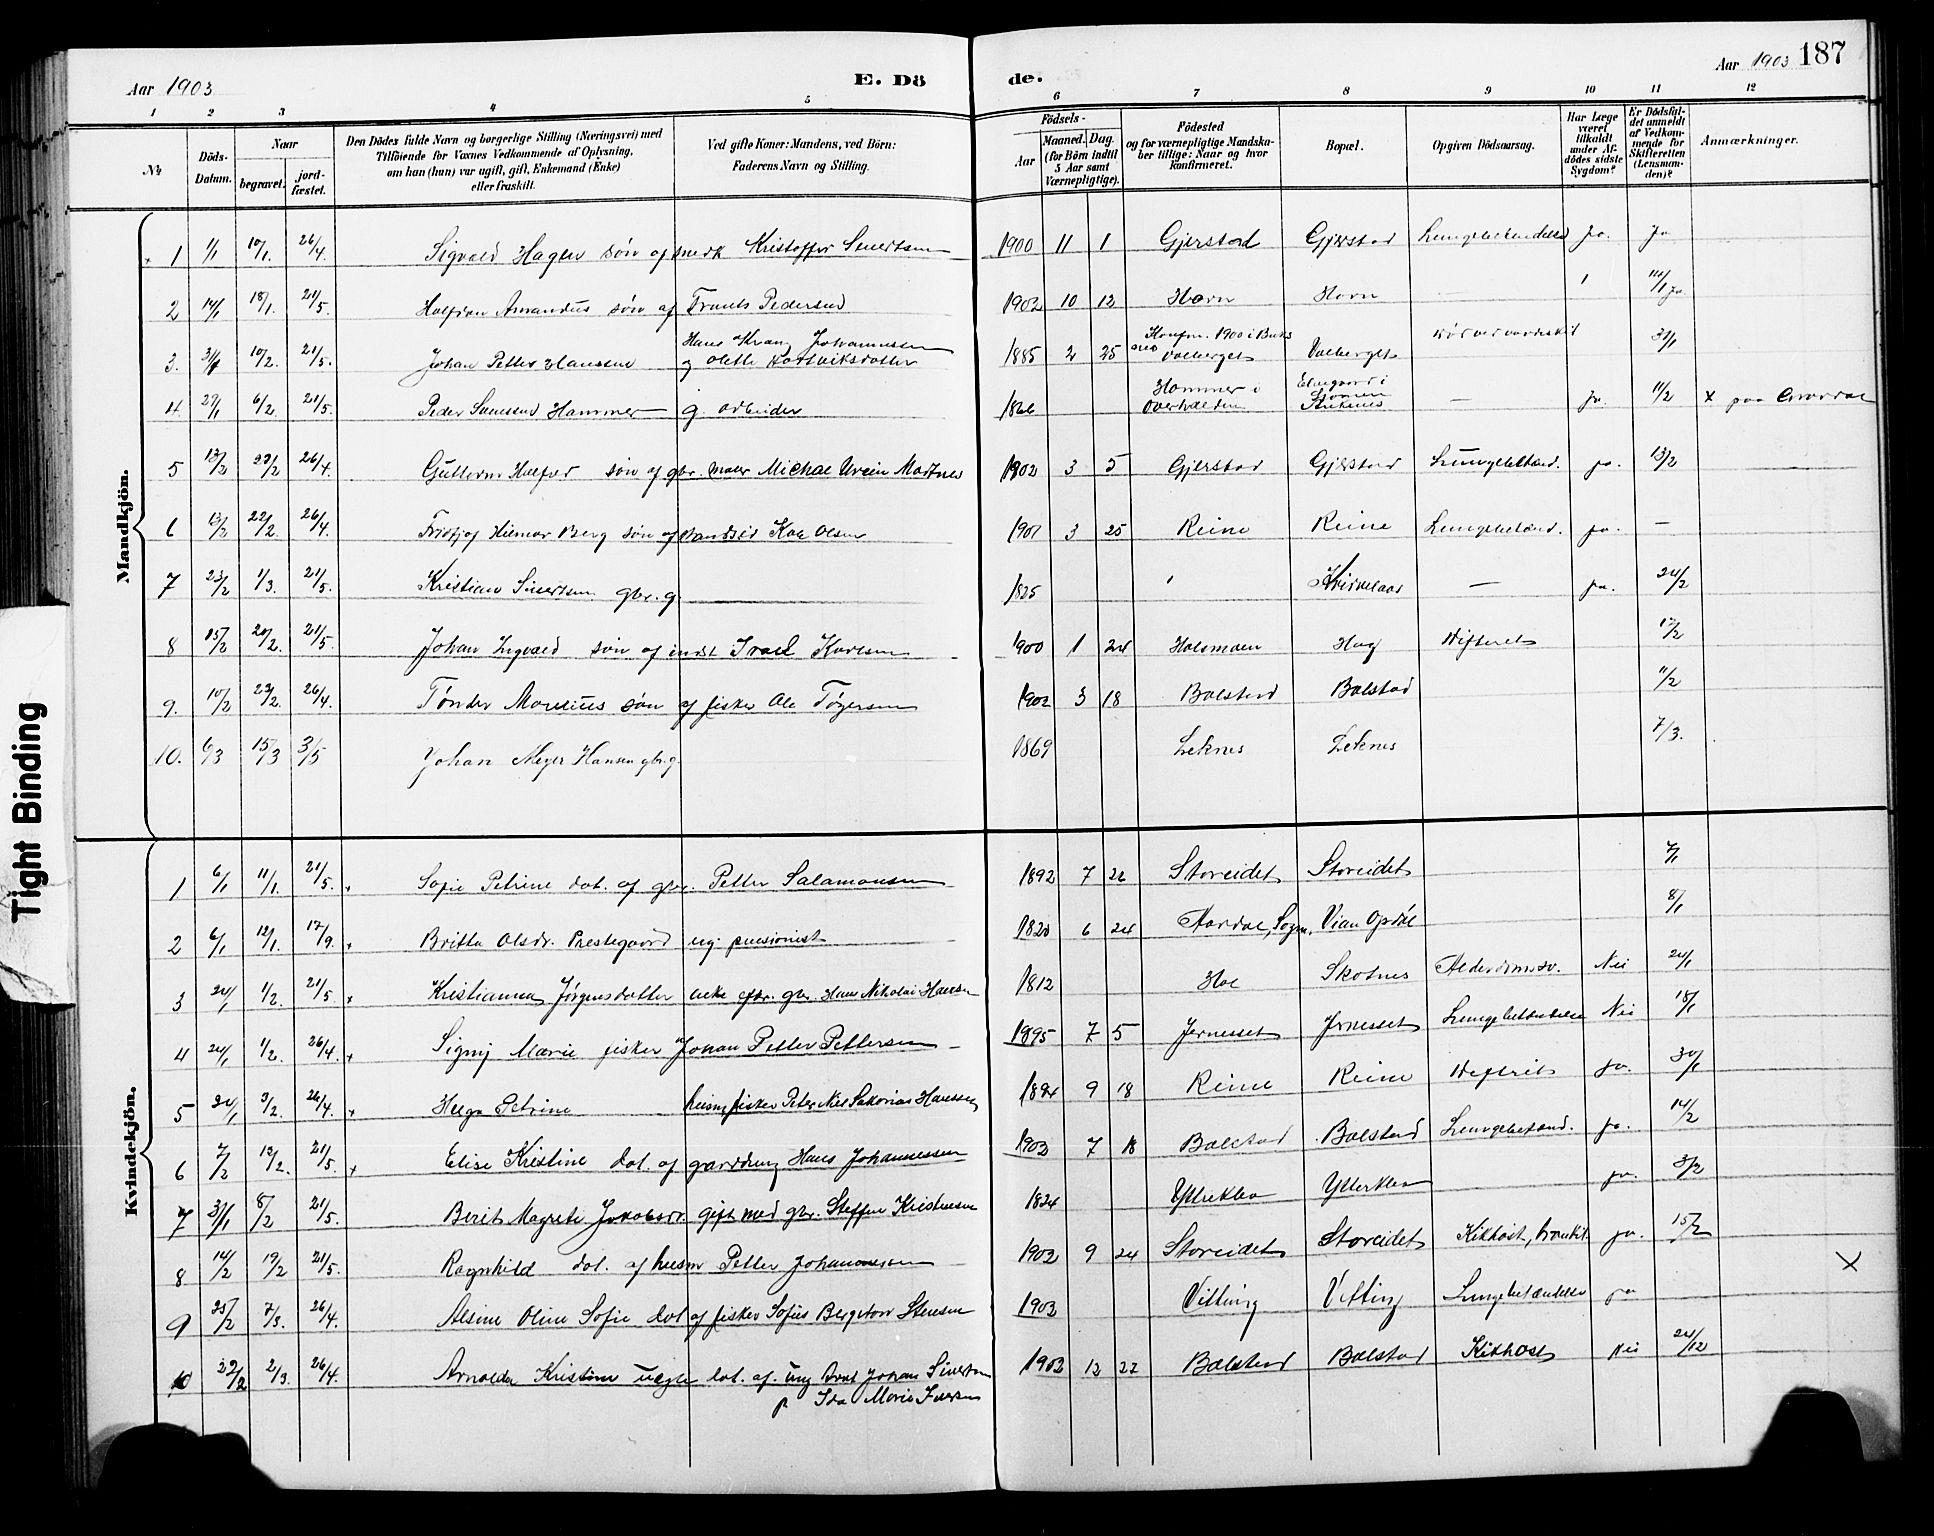 Aar 1903 E. Dö
de. Aar 1903 187
1 2 3 4 5 6 7 8 9 10 11 12
No. Döds-Datum. Naar begravet. jordfæstet. Den Dödes fulde Navn og borgerlige Stilling (Næringsvei) med Tilföiende for Voxnes Vedkommende af Oplysning, om han (hun) var ugift, gift, Enkemand (Enke) eller fraskilt. Ved gifte Koner: Mandens, ved Börn: Faderens Navn og Stilling. Födsels- Aar Maaned. Dag. (for Börn indtil 5 Aar samt Værnepligtige). Födested og for værnepligtige Mandskaber tillige: Naar og hvor konfirmeret. Bopæl. Opgiven Dödsaarsag. Har Læge været tilkaldt under Afdödes sidste Sygdom? Er Dödsfaldet anmeldt af Vedkommende for Skifteretten (Lensmanden)? Anmærkninger.
Mandkjön.
1 1/1 10/1. 26/4. Sigvald Hagbu søn af Kristoffer Sivertsen 1900 11 1 Gjerstad Gjerstad Lungebetændelse ja. ja
2 14/1 18/1. 21/5. Halfdan Amandus søn af Frants Pedersen 1902 10 12 Havn Havn — ja.
3. 31/1 10/2. 21/5. Johan Petter Hanssen Hans Johannessen
og Oleth Hartviksdatter 1885 2 25 Konfm. 1900 i Buksnes Valberget Valberget 31/1
4. 27/1 6/2. 21/5. Peder Hammer g. arbeider 1826 Hammer i Overhalden — ja. 11/2 x paa
5 13/2 22/2 26/4. Guttorm Halfred søn af gbr. Martnes 1902 3 5 Gjerstad Gjerstad Lungebetænd. ja. 13/2
6 13/2 22/2. 26/4. Fridtjof Hilmar Berg søn af Olsen 1901 3 25 Reine Reine Lungebetænd. ja. —
7 23/2 1/3. 21/5. Kristian Sivertsen gbr. g. 1825 — ja. 24/2
8 15/2 21/2. 21/5. Johan Ingvald søn af indst Israel Karlsen 1900 1 24 Holsmoen Hag Difterit 17/2
9. 10/2 23/2. 26/4. Tønder Marelius søn af fisker Ole Tøgersen 1902 3 18 Balstad Balstad 11/2
10. 6/3 15/3 3/5 Johan Meyer Hansen gbr. g. 1869 Leknes Leknes 7/3.
Kvindekjön.
1 6/1 11/1. 21/5. Sofie Petrine dat. af gbr. Petter Salamonsen 1892 7 22 Storeidet Storeidet 7/1
2 6/1 12/1. 17/9. Britta Olsdr. Prestegaard ug. pensionist 1820 6 24 Aardal, Sogn. Opdøl 8/1
3 24/1 1/2. 21/5. Kristianna Jørgensdatter enke efter gbr. Hans Nikolai Hansen 1812 Hol Skotnes Alderdomssv. Nei 24/1
4 24/1 1/2. 26/4. Signy Marie fisker Johan Petter Pettersen 1895 7 5 Jernesset Jernesset Lungebetændelse Nei 18/1
5 24/1 3/2. 26/4. Helga Petrine husm. fisker Peter Nil Sakarias Hanssen 1894 9 18 Reine Reine Difterit ja. 30/1
6 7/2 12/2. 21/5. Elise Kristine dat. af gaardbrug Hans Johannessen 1902 7 18 Balstad Balstad Lungebetænd. ja. 14/2
7 31/1 8/2 21/5. Berit Magrete Jakobsdr. gift med gbr. Steffen Kristensen 1824 Ytterklev Ytterklev ja. 3/2
8 14/2 19/2 21/5. Ragnhild dat. af husm Petter Johannessen 1902 9 24 Storeidet Storeidet Kikhost, bronkit. ja. 15/2
9 25/2 7/3. 26/4. Alsine Oline Sofie dat af fisker Sofus Bergeton Stensen 1903 Vitting Vitting Lungebetændelse ja X
10 22/2 2/3. 26/4. Arnolda Kristine uægte dat. af ung Johan Sivertsen
p Ida Marie Iversen 1902 12 22 Balstad Balstad Kikhost Nei 24/12
Tight Binding